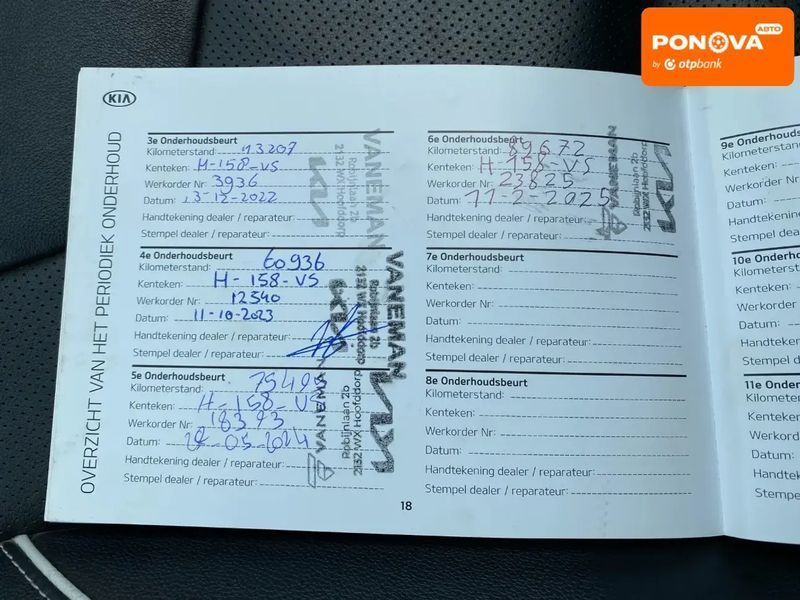 PONOVA АВТО
by otpbank
KIA
OVERZICHT VAN HET PERIODIEK ONDERHOUD
3e Onderhoudsbeurt
Kilometerstand: 43207
Kenteken: H-158-VS
Werkorder Nr: 3936
Datum: 13-12-2022
Handtekening dealer / reparateur:
Stempel dealer / reparateur:
VANEMAN
Robijnlaan 2b
2132 WX Hoofddorp
4e Onderhoudsbeurt
Kilometerstand: 60936
Kenteken: H-158-VS
Werkorder Nr: 12540
Datum: 11-10-2023
Handtekening dealer / reparateur:
Stempel dealer / reparateur:
VANEMAN
Robijnlaan 2b
2132 WX Hoofddorp
5e Onderhoudsbeurt
Kilometerstand: 75495
Kenteken: H-158-VS
Werkorder Nr: 18393
Datum: 22-05-2024
Handtekening dealer / reparateur:
Stempel dealer / reparateur:
VANEMAN
Robijnlaan 2b
2132 WX Hoofddorp
6e Onderhoudsbeurt
Kilometerstand: 89672
Kenteken: H-158-VS
Werkorder Nr: 23825
Datum: 11-2-2025
Handtekening dealer / reparateur:
Stempel dealer / reparateur:
VANEMAN
Robijnlaan 2b
2132 WX Hoofddorp
7e Onderhoudsbeurt
Kilometerstand:
Kenteken:
Werkorder Nr:
Datum:
Handtekening dealer / reparateur:
Stempel dealer / reparateur:
8e Onderhoudsbeurt
Kilometerstand:
Kenteken:
Werkorder Nr:
Datum:
Handtekening dealer / reparateur:
Stempel dealer / reparateur:
18
9e Onderho
Kilometerstand
Kenteken:
Werkorder N
Datum:
Handtekenin
Stempel dea
10e Onderho
Kilometerst
Kenteken:
Werkorder
Datum:
Handteken
Stempel de
11e Onder
Kilometer
Kenteken
Werkord
Datum:
Handtek
Stempe